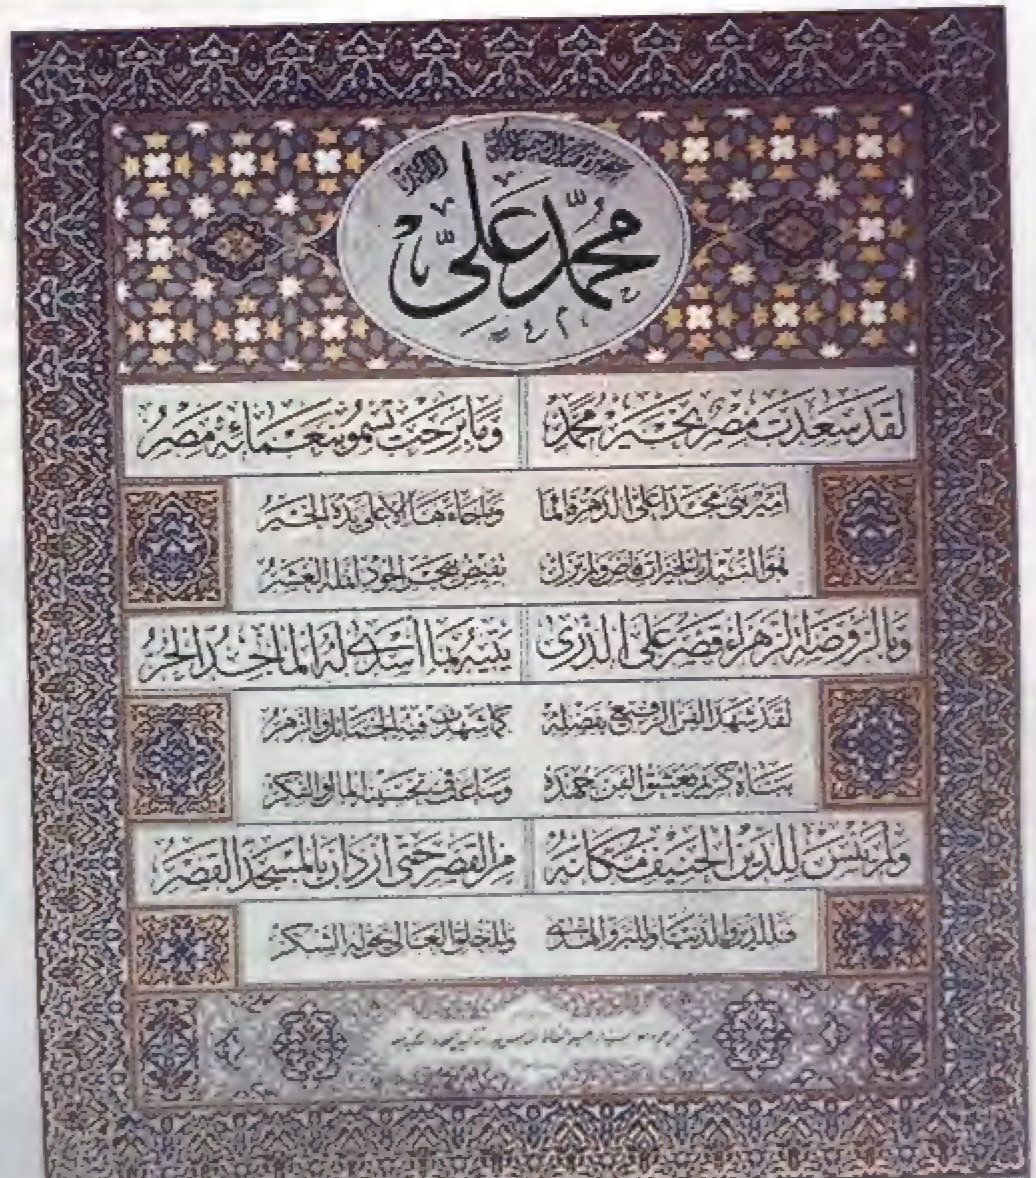 محمد علي
لقد سعدت مصر بخير محمد وما برحت تسمو بنعمائه مصر
أمير بنى مجدا على الدهر قائما وما جاءها إلا على يده الخير
هو النيل بالخيرات فاض ولم تزل تفيض بحر الجود أنمله العشر
وبالروضة الزهراء قصر على الذرى يتيه بما أسدى له الماجد الحر
لقد شهد الفن الرفيع بفضله كما شهدت فيه الخمائل والزهر
بناه كريم يعشق الفن جهده وساعد في تحسينه المال والفكر
ولم ينس للدين الحنيف مكانه من القصر حتى ازدان بالمسجد القصر
فللدين والدنيا وللبر والهدى وللخلق العالي يحق له الشكر